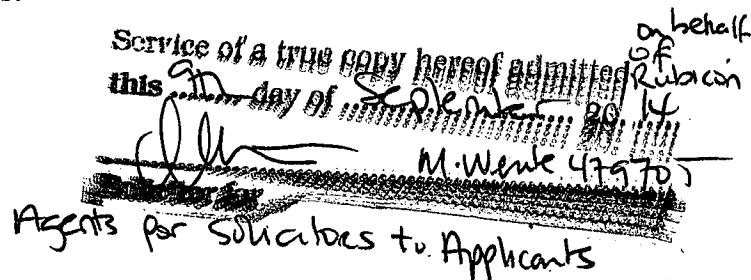 Service of a true copy hereof admitted on behalf of Rubicon
this 9th day of September 20 14
M. Wente 479705
Solicitor for
Agents for Solicitors to Applicants